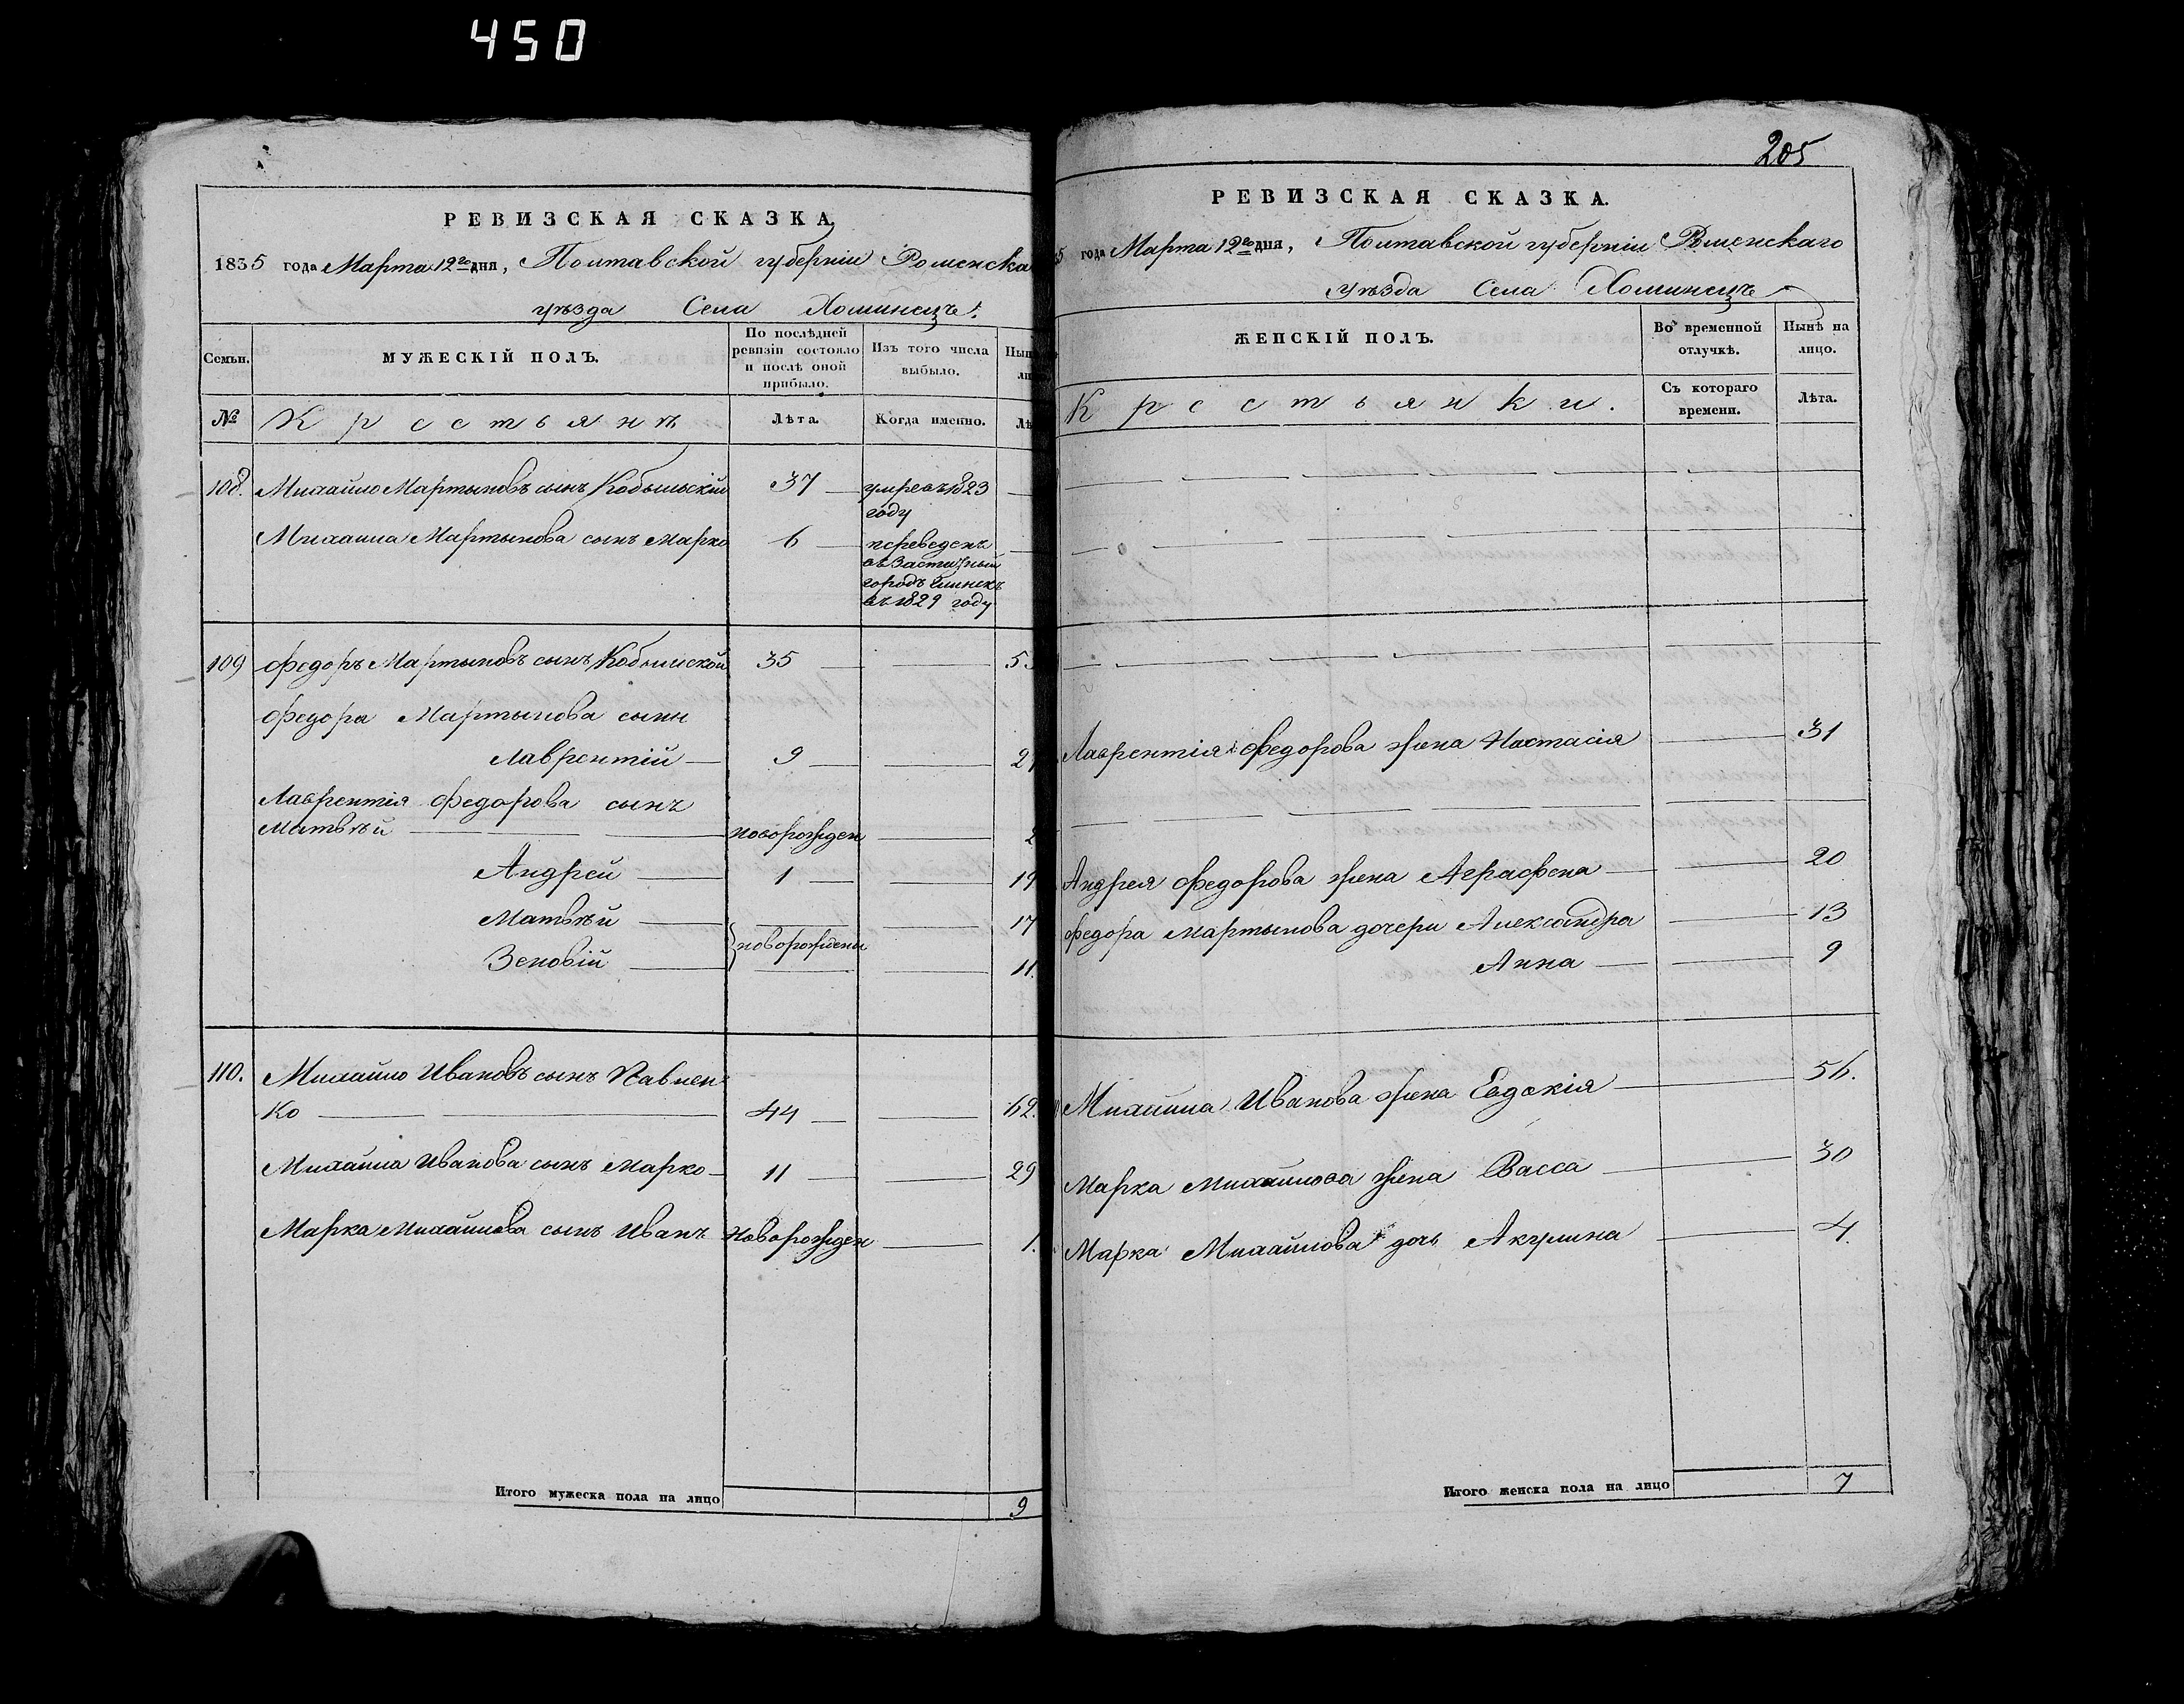 450
РЕВИЗСКАЯ СКАЗКА,
1835 года Марта 12го дня, Полтавской губерніи Роменска
уѣзда Села Хоминецъ.
Семьи.
МУЖЕСКІЙ ПОЛЪ.
По послѣдней
ревизіи состояло
и послѣ оной
прибыло.
Изъ того числа
выбыло.
№
Крестьянъ
Лѣта.
Когда именно.
108. Михайло Мартыновъ сынъ Кобыльскій 37 умре въ 1823
году
Михаила Мартынова сынъ Марко 6 переведенъ
въ Заштатный
городъ Глинскъ
въ 1829 году
109 Федоръ Мартыновъ сынъ Кобылской 35
Федора Мартынова сынъ
Лаврентій 9
Лаврентія Федорова сынъ
Матвѣй новорожден
Андрей 1 19
Матвѣй 17
новорождены
Зеновій 11.
110. Михайло Ивановъ сынъ Павлен
ко 44 62.
Михаила Иванова сынъ Марко 11 29
Марка Михайлова сынъ Иванъ Новорожден 1.
Итого мужеска пола на лицо 9
205
РЕВИЗСКАЯ СКАЗКА.
5 года Марта 12го дня, Полтавской губерніи Роменскаго
уѣзда Села Хоминецъ
ЖЕНСКІЙ ПОЛЪ.
Во временной
отлучкѣ.
Нынѣ на
лицо.
Крестьянки.
Съ котораго
времени.
Лѣта.
Лаврентія Федорова жена Настасія 31
Андрея Федорова жена Аграфена 20
Федора Мартынова дочери Александра 13
Анна 9
Михайла Иванова жена Евдокія 56.
Марка Михайлова жена Васса 30
Марка Михайлова дочь Акулина 4.
Итого женска пола на лицо 7